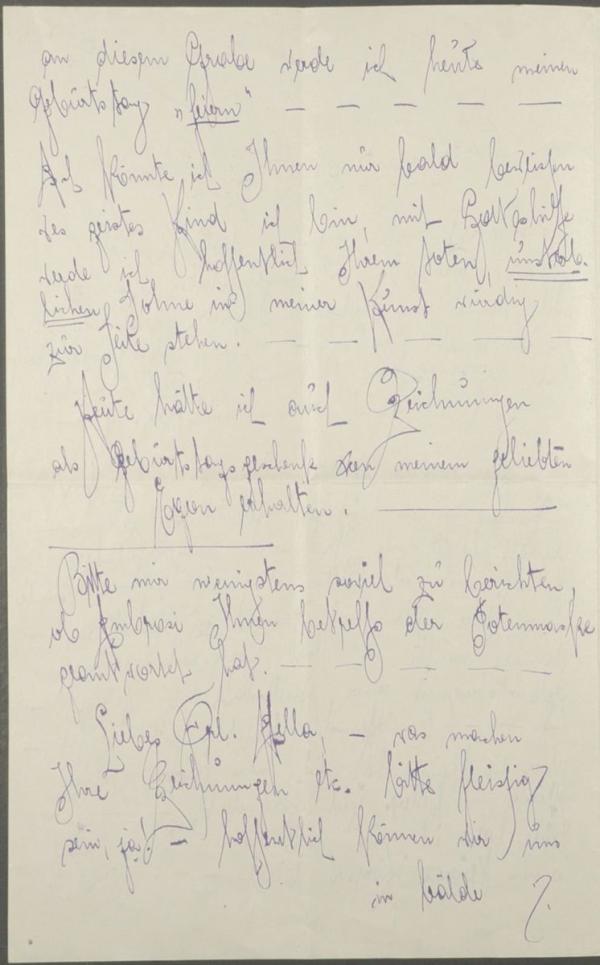 an diesem Grabe werde ich heute meinen
Geburtstag „feiern“ — — — — —
Ach könnte ich Ihnen nur bald beweisen
wes geistes Kind ich bin, mit Gottshilfe
werde ich hoffentlich Ihrem toten, unsterb-
lichen Sohne in meiner Kunst würdig
zur Seite stehen. — — — — —
Heute hätte ich auch Zeichnungen
als Geburtstagsgeschenk von meinem geliebten
Egon erhalten. —
Bitte mir wenigstens soviel zu berichten,
ob Ambrosi Ihnen betreffs der Totenmaske
geantwortet hat. — — — —
Liebes Frl. Mella, — was machen
Ihre Zeichnungen etc. bitte fleissig
sein, ja! — hoffentlich können wir uns
in bälde